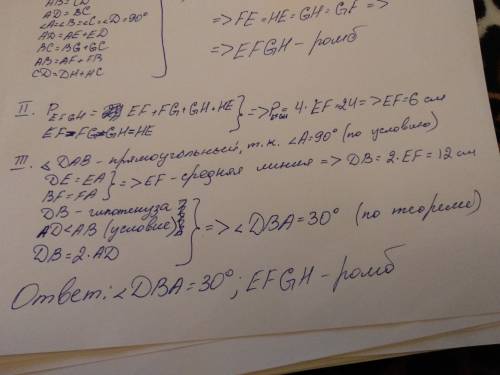 AB = CD
AD = BC
∠A=∠B=∠C=∠D=90°
AD = AE+ED
BC = BG+GC
AB = AF+FB
CD = DH+HC
=> FE = HE = GH = GF =>
=> EFGH - ромб
II. P EFGH = EF + FG + GH + HE
EF=FG=GH=HE
=> P EFGH = 4·EF = 24 => EF = 6 см
III. ∠DAB - прямоугольный, т.к. ∠A=90° (по условию)
DE = EA
BF = FA
=> EF - средняя линия => DB = 2·EF = 12 см
DB - гипотенуза
AD < AB (условие)
DB = 2·AD
=> ∠DBA = 30° (по теореме)
Ответ: ∠DBA = 30°; EFGH - ромб